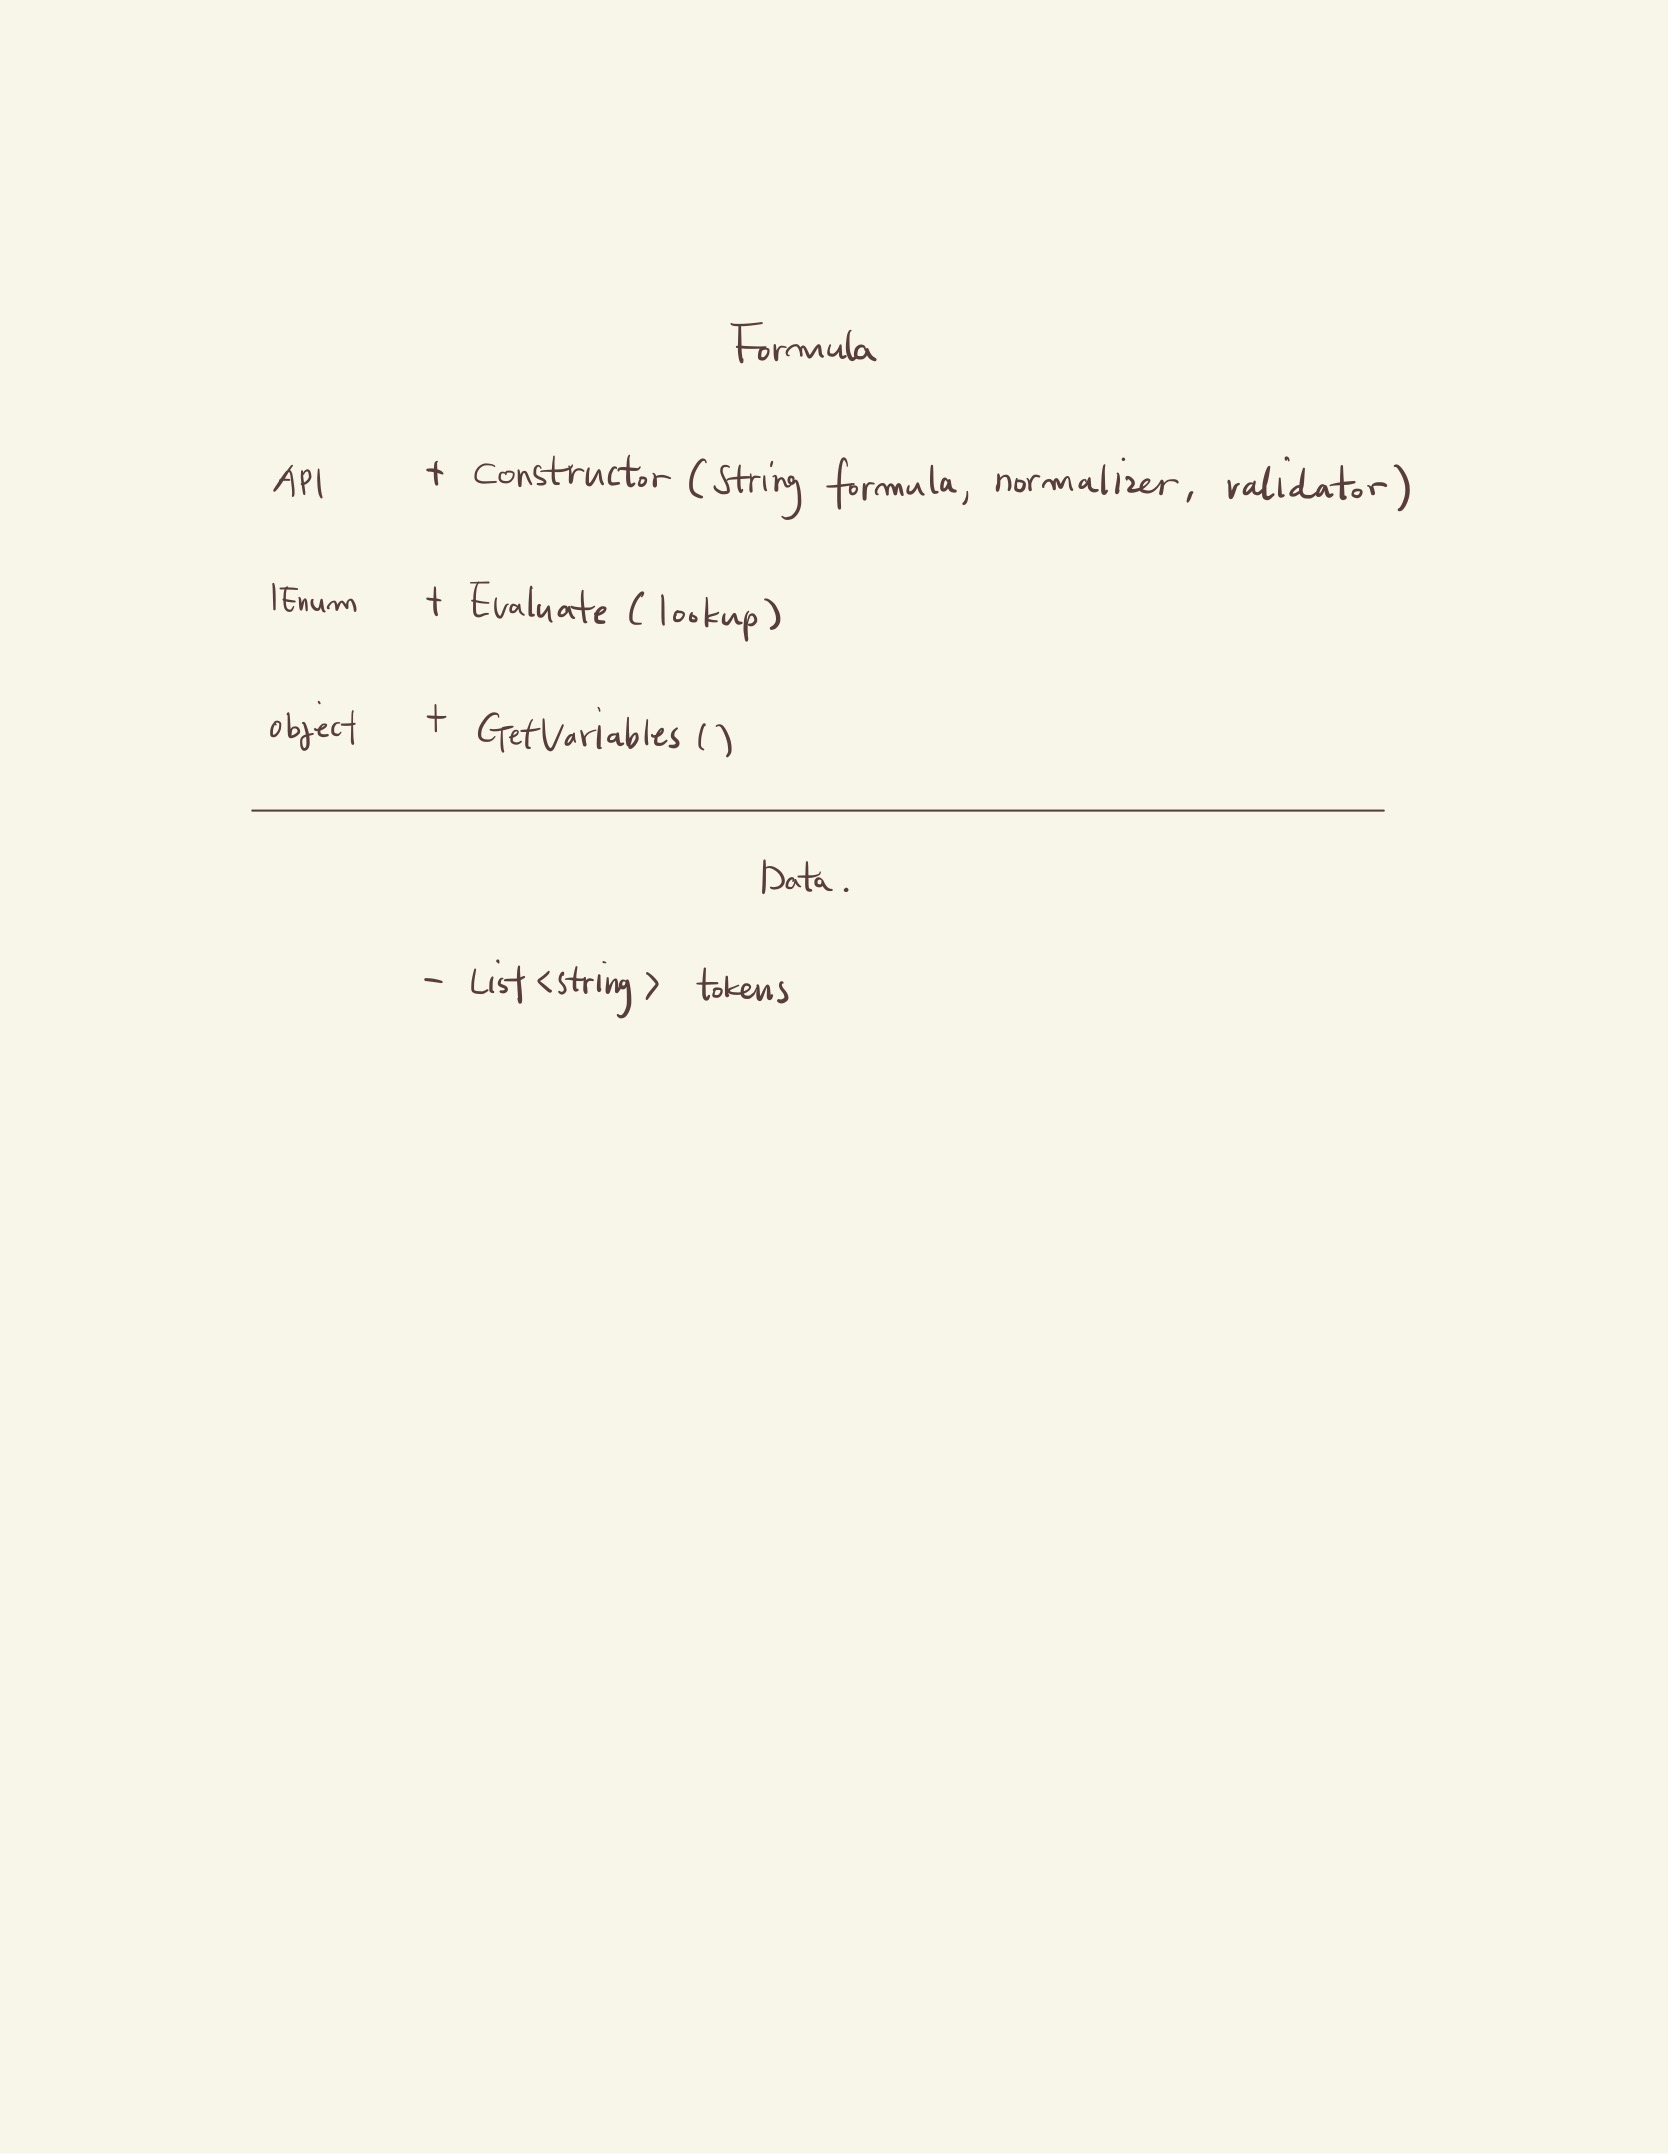 Formula
API + Constructor (String formula, normalizer, validator)
IEnum + Evaluate (lookup)
object + GetVariables ()
Data.
- List <string> tokens